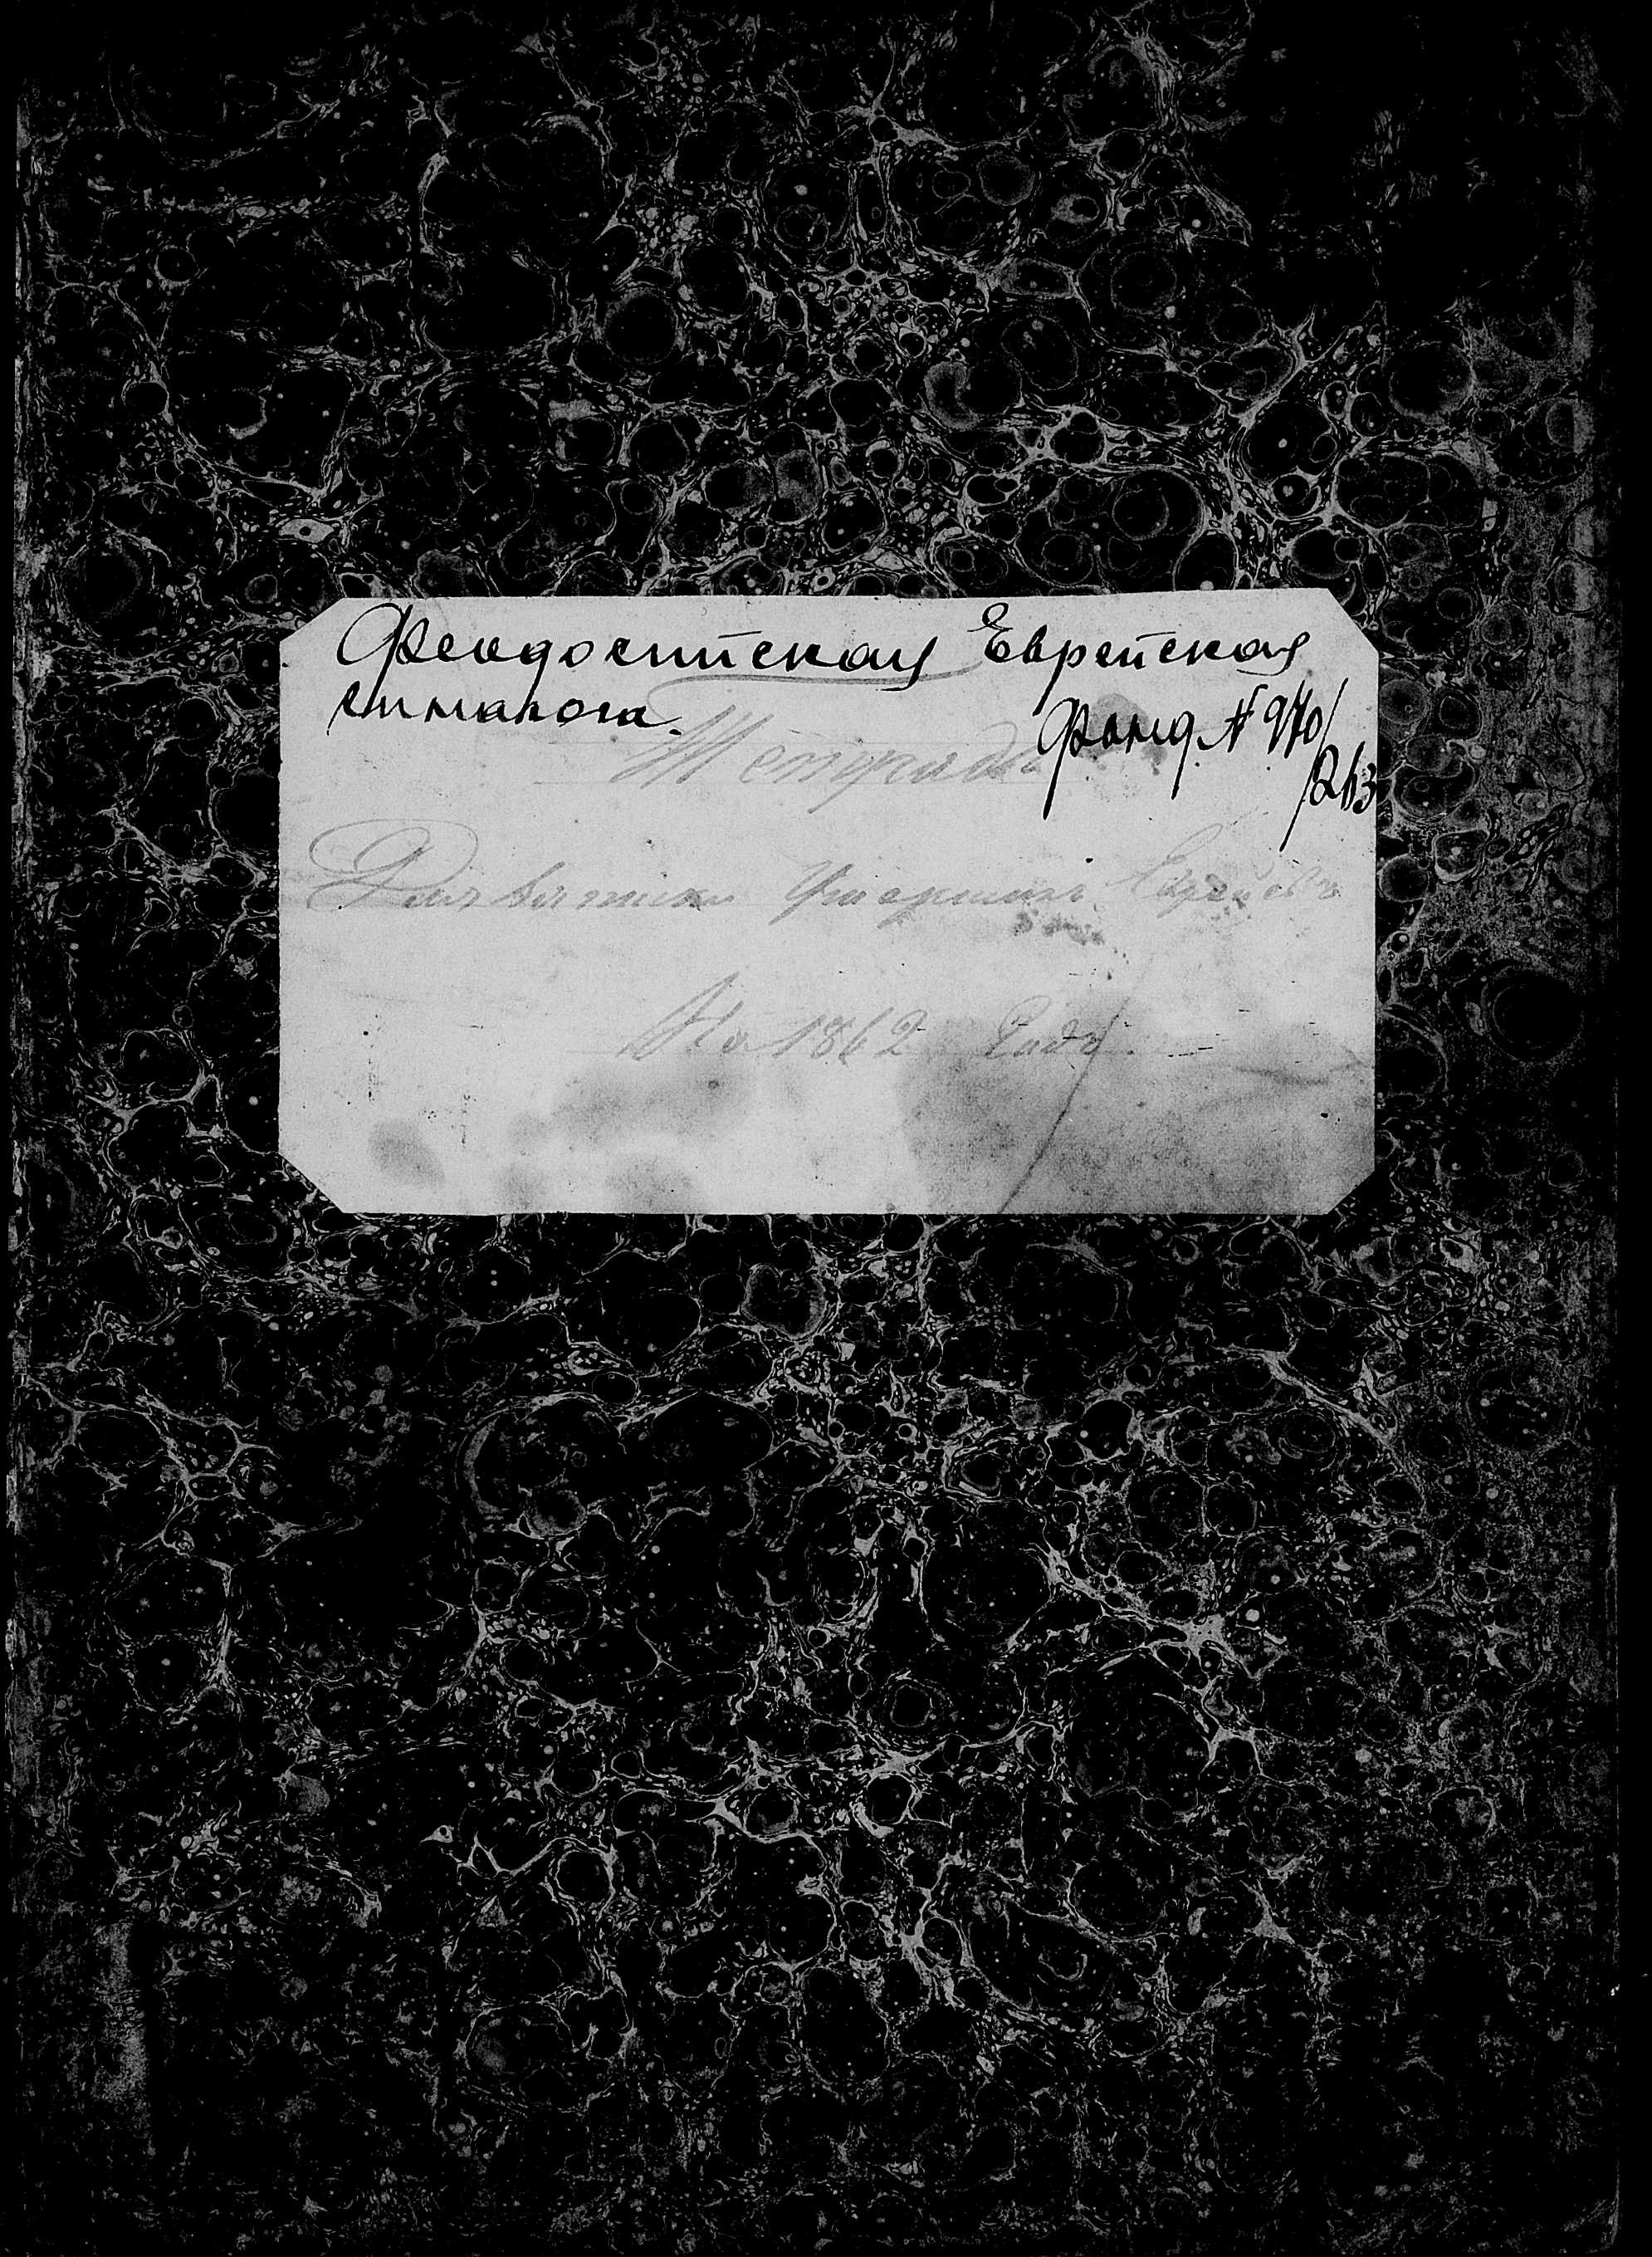 Феодосийская Еврейская
синагога.
Фонд. № 970/
/263
Тетрадь
Для записки Умершихъ Евреевъ
На 1862 Годъ.